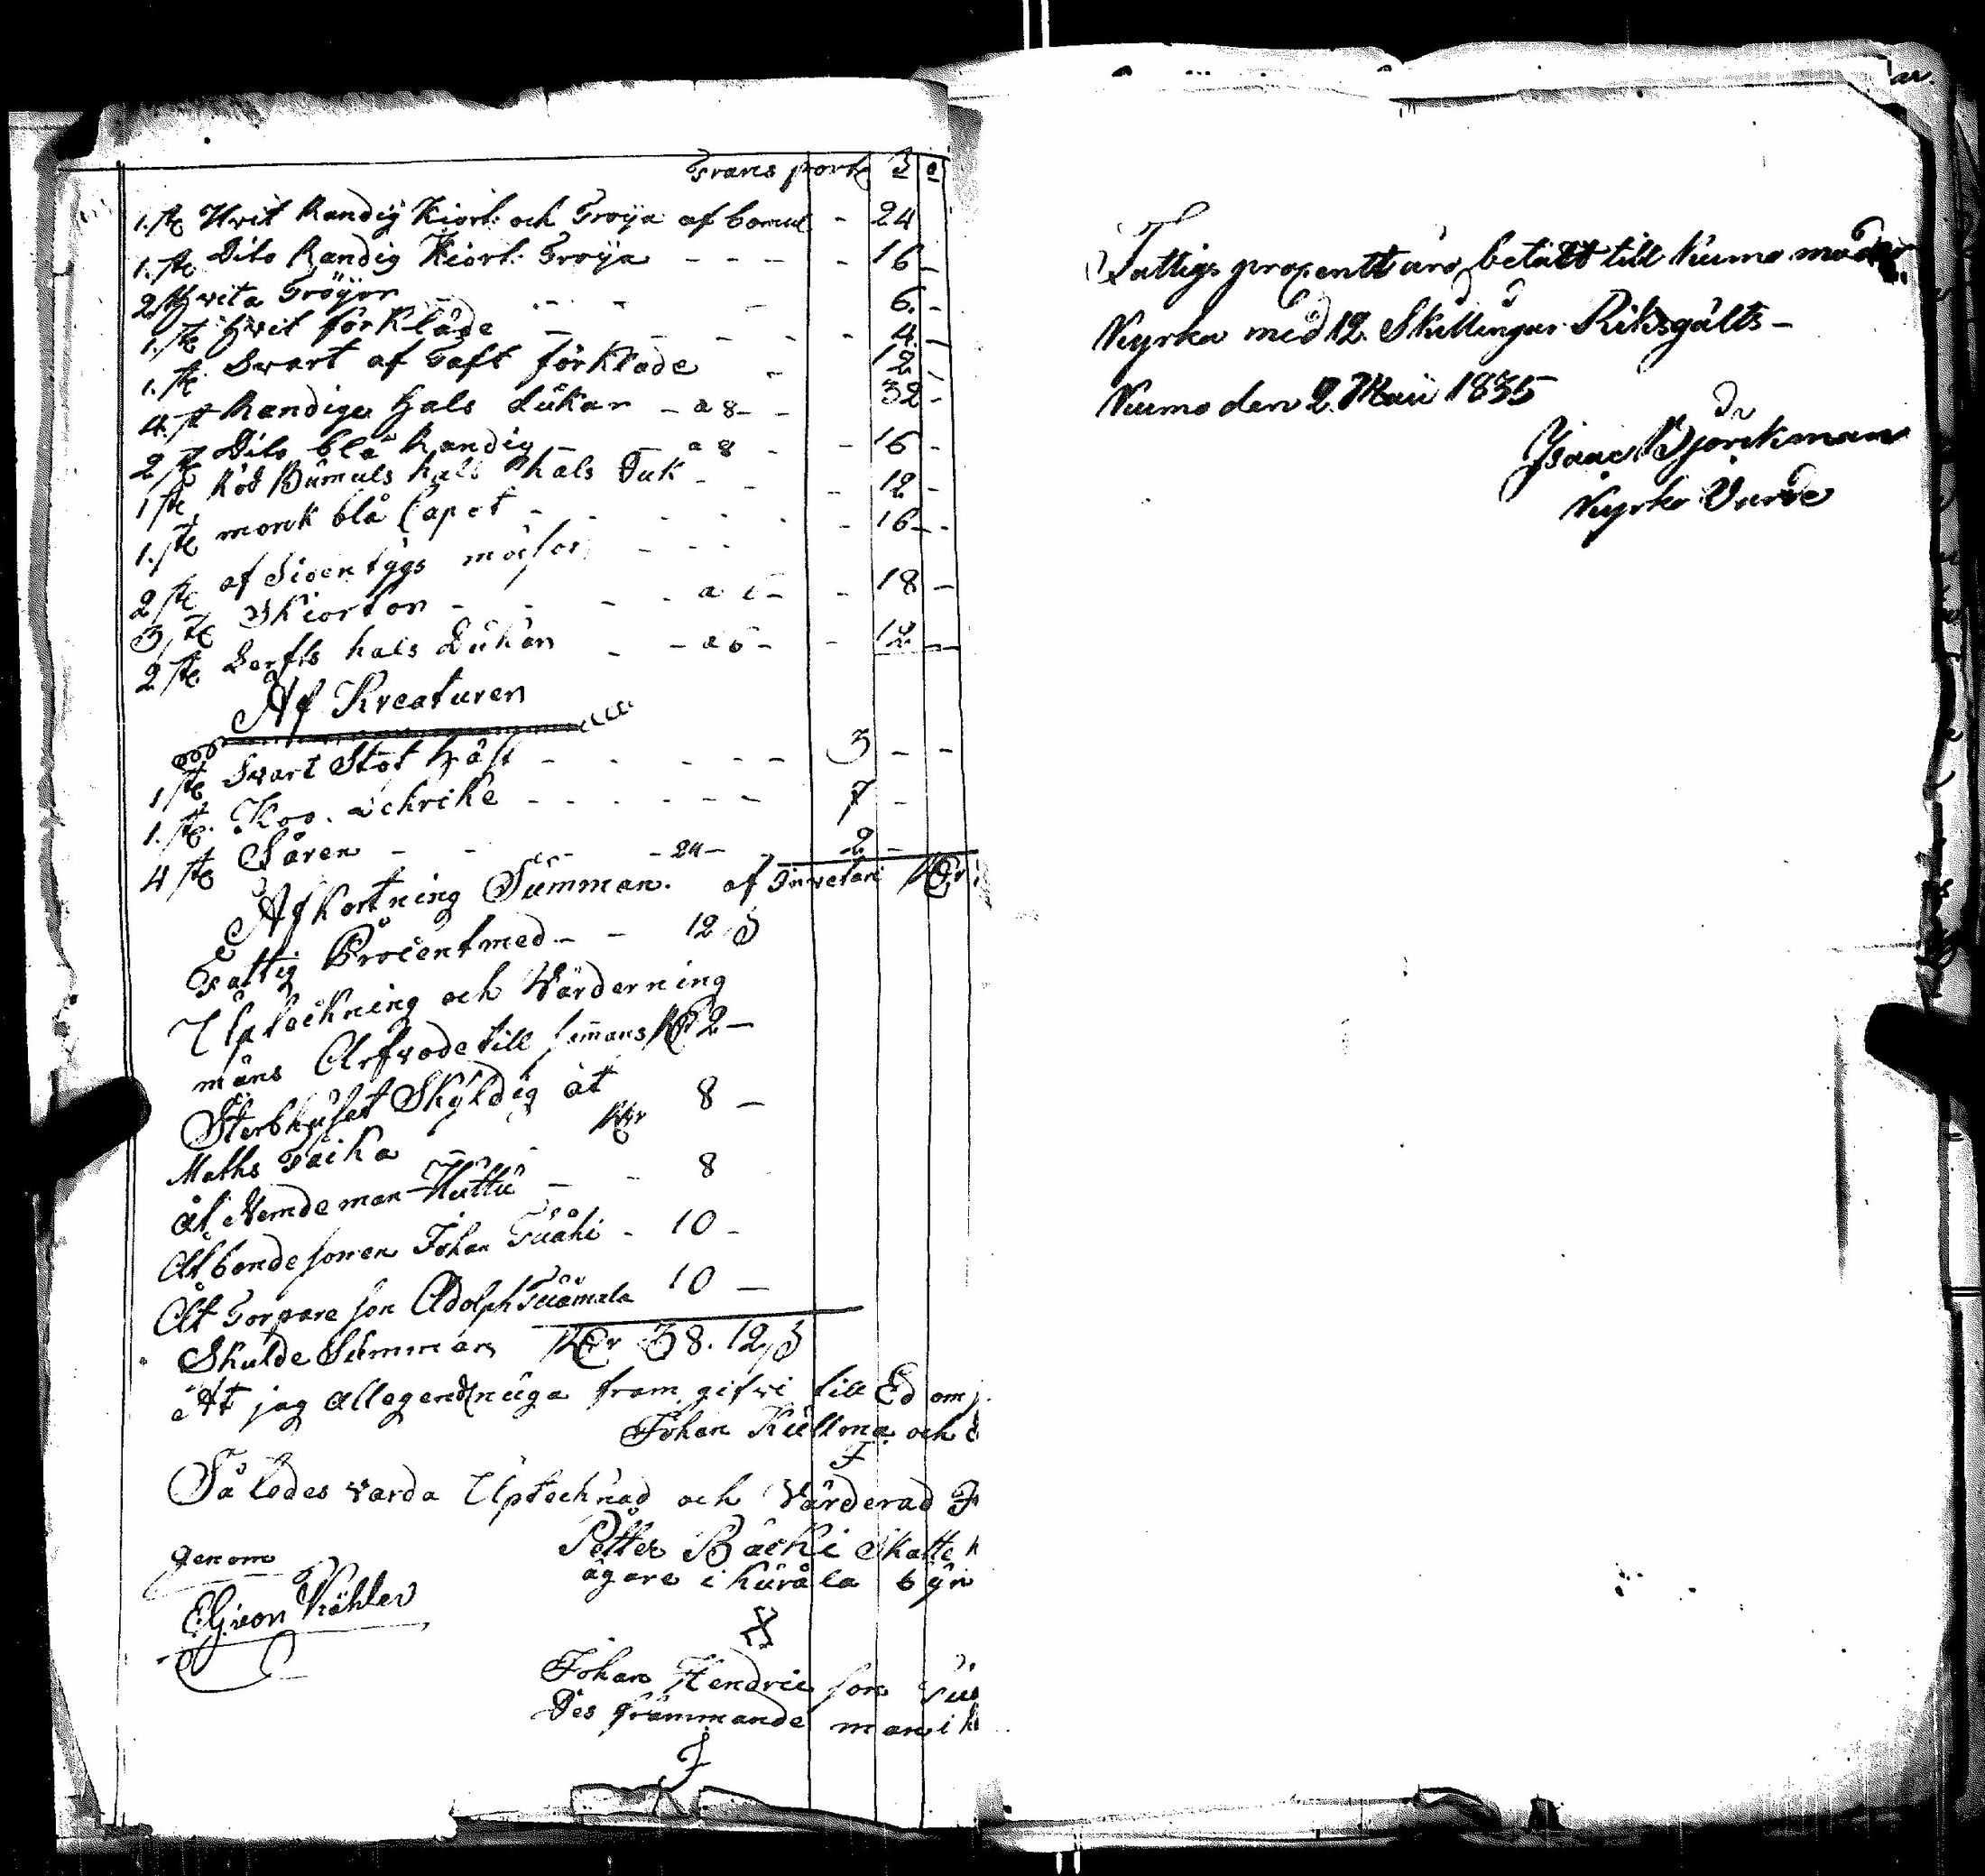 Transport 3 a
1. st Hvit Randig Kiort: och Tröija af bomul - 24
1. st Dito Randig Kiort: Tröija - - - - 16 -
2 st hvita Tröijor - - - - 6. -
1. st hvit förKlåde - - - - - 4. -
1. st Svart af Taft förklade - 12 -
4. st Randiga Hals dukar - a 8 - - 32 -
2 st Dito blå Randig - - a 8 - - 16 -
1 st Röd Bumuls hals hals Duk - - - 12 -
1. st mörk blå Capot - - - - - - 16 - -
2 st af Sidentygs mössor - - -
3 st Skiorton - - - - a 6 - - 18 -
2 st Lerfts hals Dukan - - a 6 - - 12 -
Af Kreaturen
1 st Svart Stot häst - - - - - 3 - -
1. st Koo. - - - - - - 7 -
4 st Fåren - - - - 24 - - 2 -
Afkortning Summan. af
Fattig Procent med - - 12 ß
Upteckning och Värderning
mäns Arfvode till samans RR 2 -
Sterbhuset Skyldig åt
Maths - - RRr 8 -
åt Nemdeman Huttu - - 8
Åt bonde sonen Johan - 10 -
Åt Torpare son Adolph 10 -
Skulde Summan RRr 38. 12 ß
At jag fram gifvi till Ed om
Johan Kullma och
Således varda Uptechnad och Värderad
genom Petter Bäcki Skatte
ägare i Kuråla byn
E.G. von Köhler
Johan Hendric son
Des främmande man i
Fattigs propentt äro betalt till Kumo moder
Kyrka med 12 Skillingar Riksgälts -
Kumo den 2. Maii 1835
Isaac Björckman
Kyrko Värde